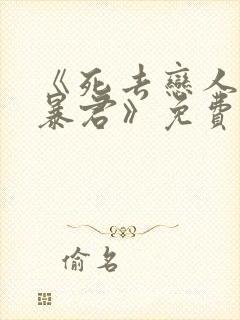 《死去戀人
暴君》免費
偷名